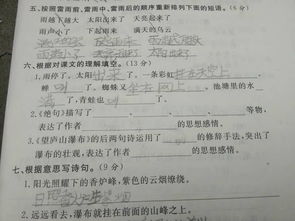 五、按照雷雨前、雷雨中、雷雨后的顺序重新排列下面的短语。(6分)
雨越下越大 太阳出来了 天亮起来了
雨声小了 下起雨来 满天的乌云
六、根据对课文的理解填空。(13分)
1.雨停了。太阳出来了。一条彩虹挂在天空上
蝉叫了。蜘蛛又坐在网上。池塘里的水
满了,青蛙也叫了。
2.《绝句》描写了 等物,
表达了作者 的思想感情。
3.《望庐山瀑布》的后两句诗运用了 的修辞手法,突出了
瀑布的壮观,表达了作者 的思想感情。
七、根据意思写诗句。(9分)
1.阳光照耀下的香炉峰,紫色的云烟缭绕。
日照香
2.远远看去,瀑布就挂在前面的山峰之上。